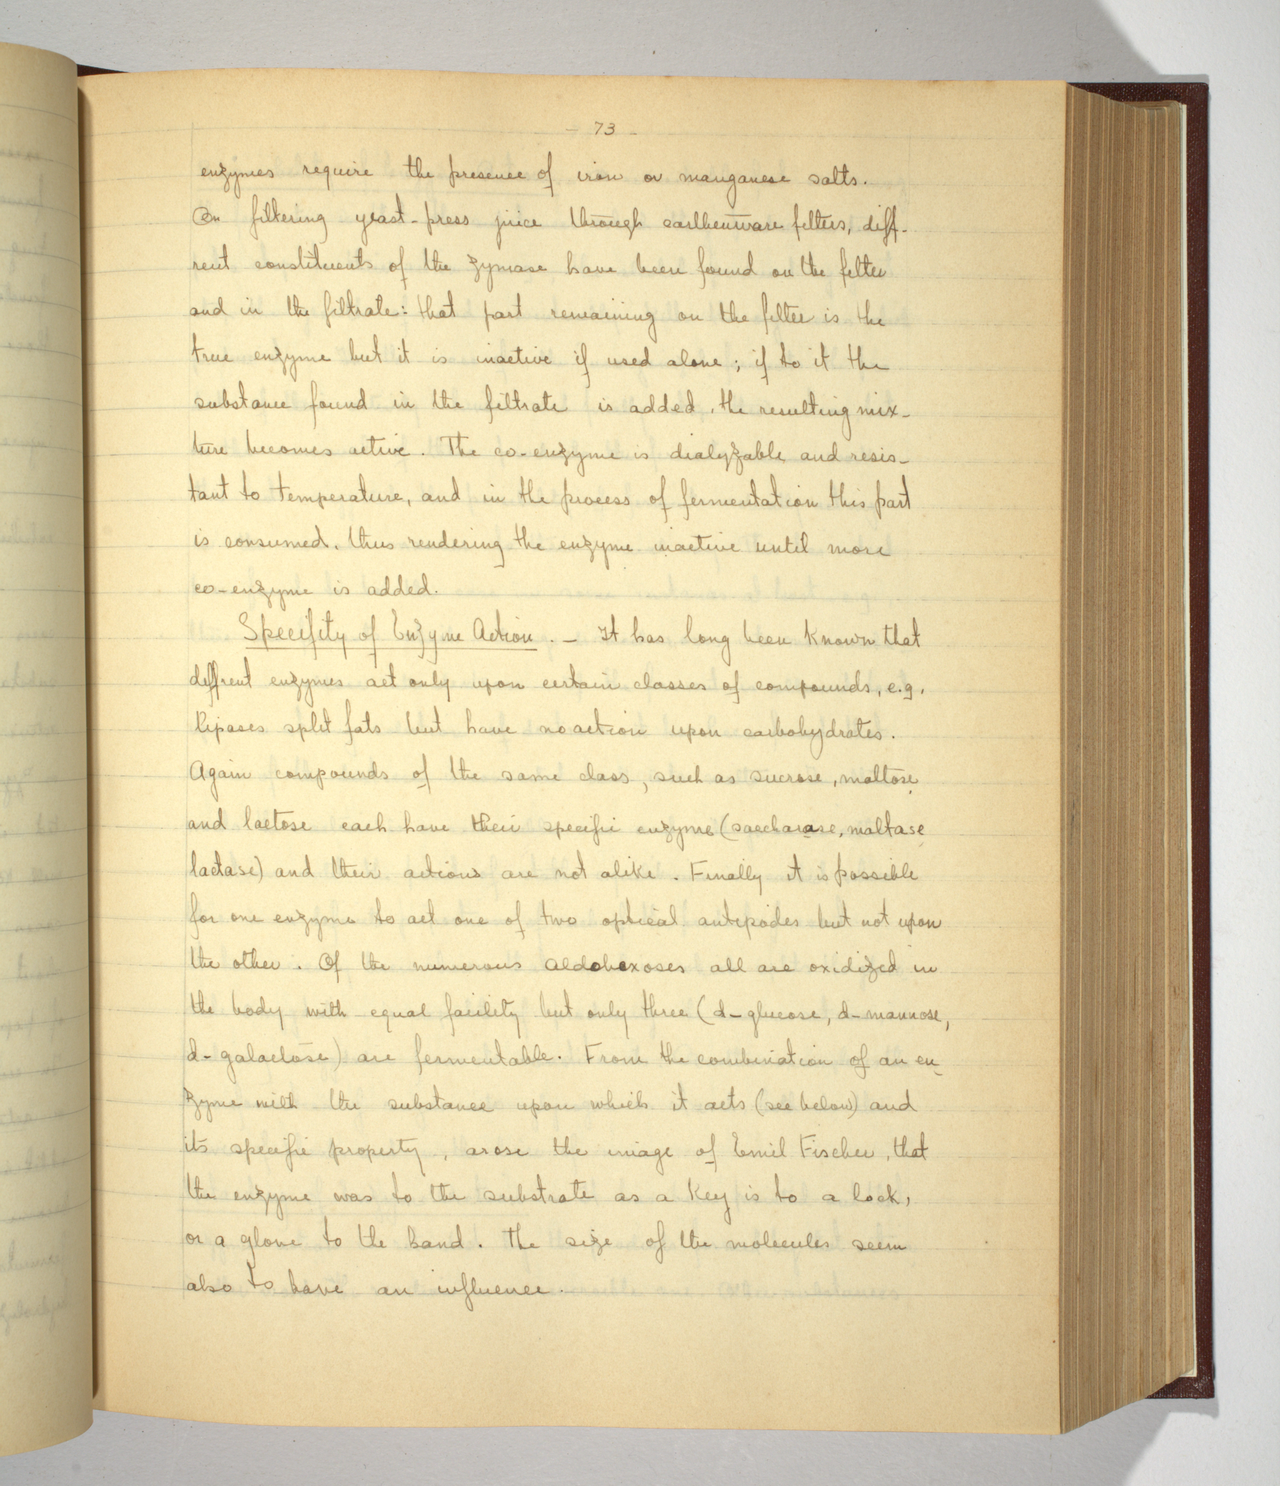 - 73 -
enzymes require the presence of iron or manganese salts.
On filtering yeast-press juice through earthenware filters, diff-
rent constituents of the zymase have been found on the filter
and in the filtrate: that part remaining on the filter is the
true enzyme but it is inactive if used alone; if to it the
substance found in the filtrate is added, the resulting mix-
ture becomes active. The co-enzyme is dialyzable and resis-
tant to temperature, and in the process of fermentation this part
is consumed, thus rendering the enzyme inactive until more
co-enzyme is added.
Specifity of Enzyme Action. - It has long been known that
diffrent enzymes act only upon certain classes of compounds, e.g.
lipases split fats but have no action upon carbohydrates.
Again compounds of the same class, such as sucrose, maltose
and lactose each have their specific enzyme (saccharase, maltase
lactase) and their actions are not alike. Finally it is possible
for one enzyme to act one of two optical antipodes but not upon
the other. Of the numerous aldohexoses all are oxidized in
the body with equal facility but only three (d-glucose, d-mannose,
d-galactose) are fermentable. From the combination of an en-
zyme with the substance upon which it acts (see below) and
its specific property, arose the image of Emil Fischer, that
the enzyme was to the substrate as a key is to a lock,
or a glove to the hand. The size of the molecules seem
also to have an influence.